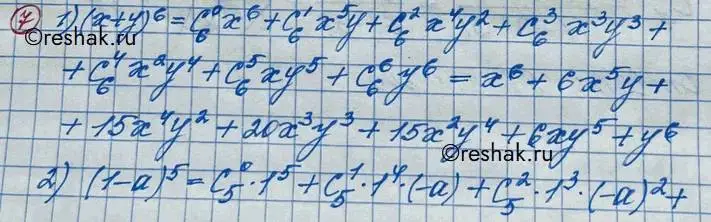 7 1) (x+y)⁶ = C₆⁰x⁶ + C₆¹x⁵y + C₆²x⁴y² + C₆³x³y³ +
+ C₆⁴x²y⁴ + C₆⁵xy⁵ + C₆⁶y⁶ = x⁶ + 6x⁵y +
+ 15x⁴y² + 20x³y³ + 15x²y⁴ + 6xy⁵ + y⁶
2) (1-a)⁵ = C₅⁰·1⁵ + C₅¹·1⁴·(-a) + C₅²·1³·(-a)² +